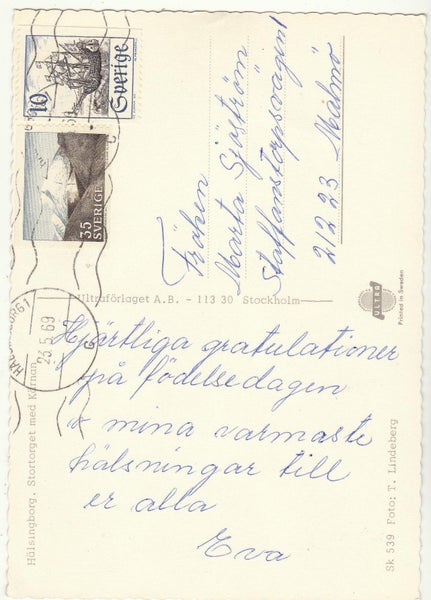 10
Sverige
35
SVERIGE
HÄLSINGBORG 1
23.5.69
Fröken
Marta Sjöström
Staffanstorpsvägen 1
212 23 Malmö
Ultraförlaget A.B. - 113 30 Stockholm
ULTRA
Printed in Sweden
Hjärtliga gratulationer
på födelsedagen
o mina varmaste
hälsningar till
er alla
Eva
Hälsingborg. Stortorget med Kärnan
Sk 539 Foto: T. Lindeberg